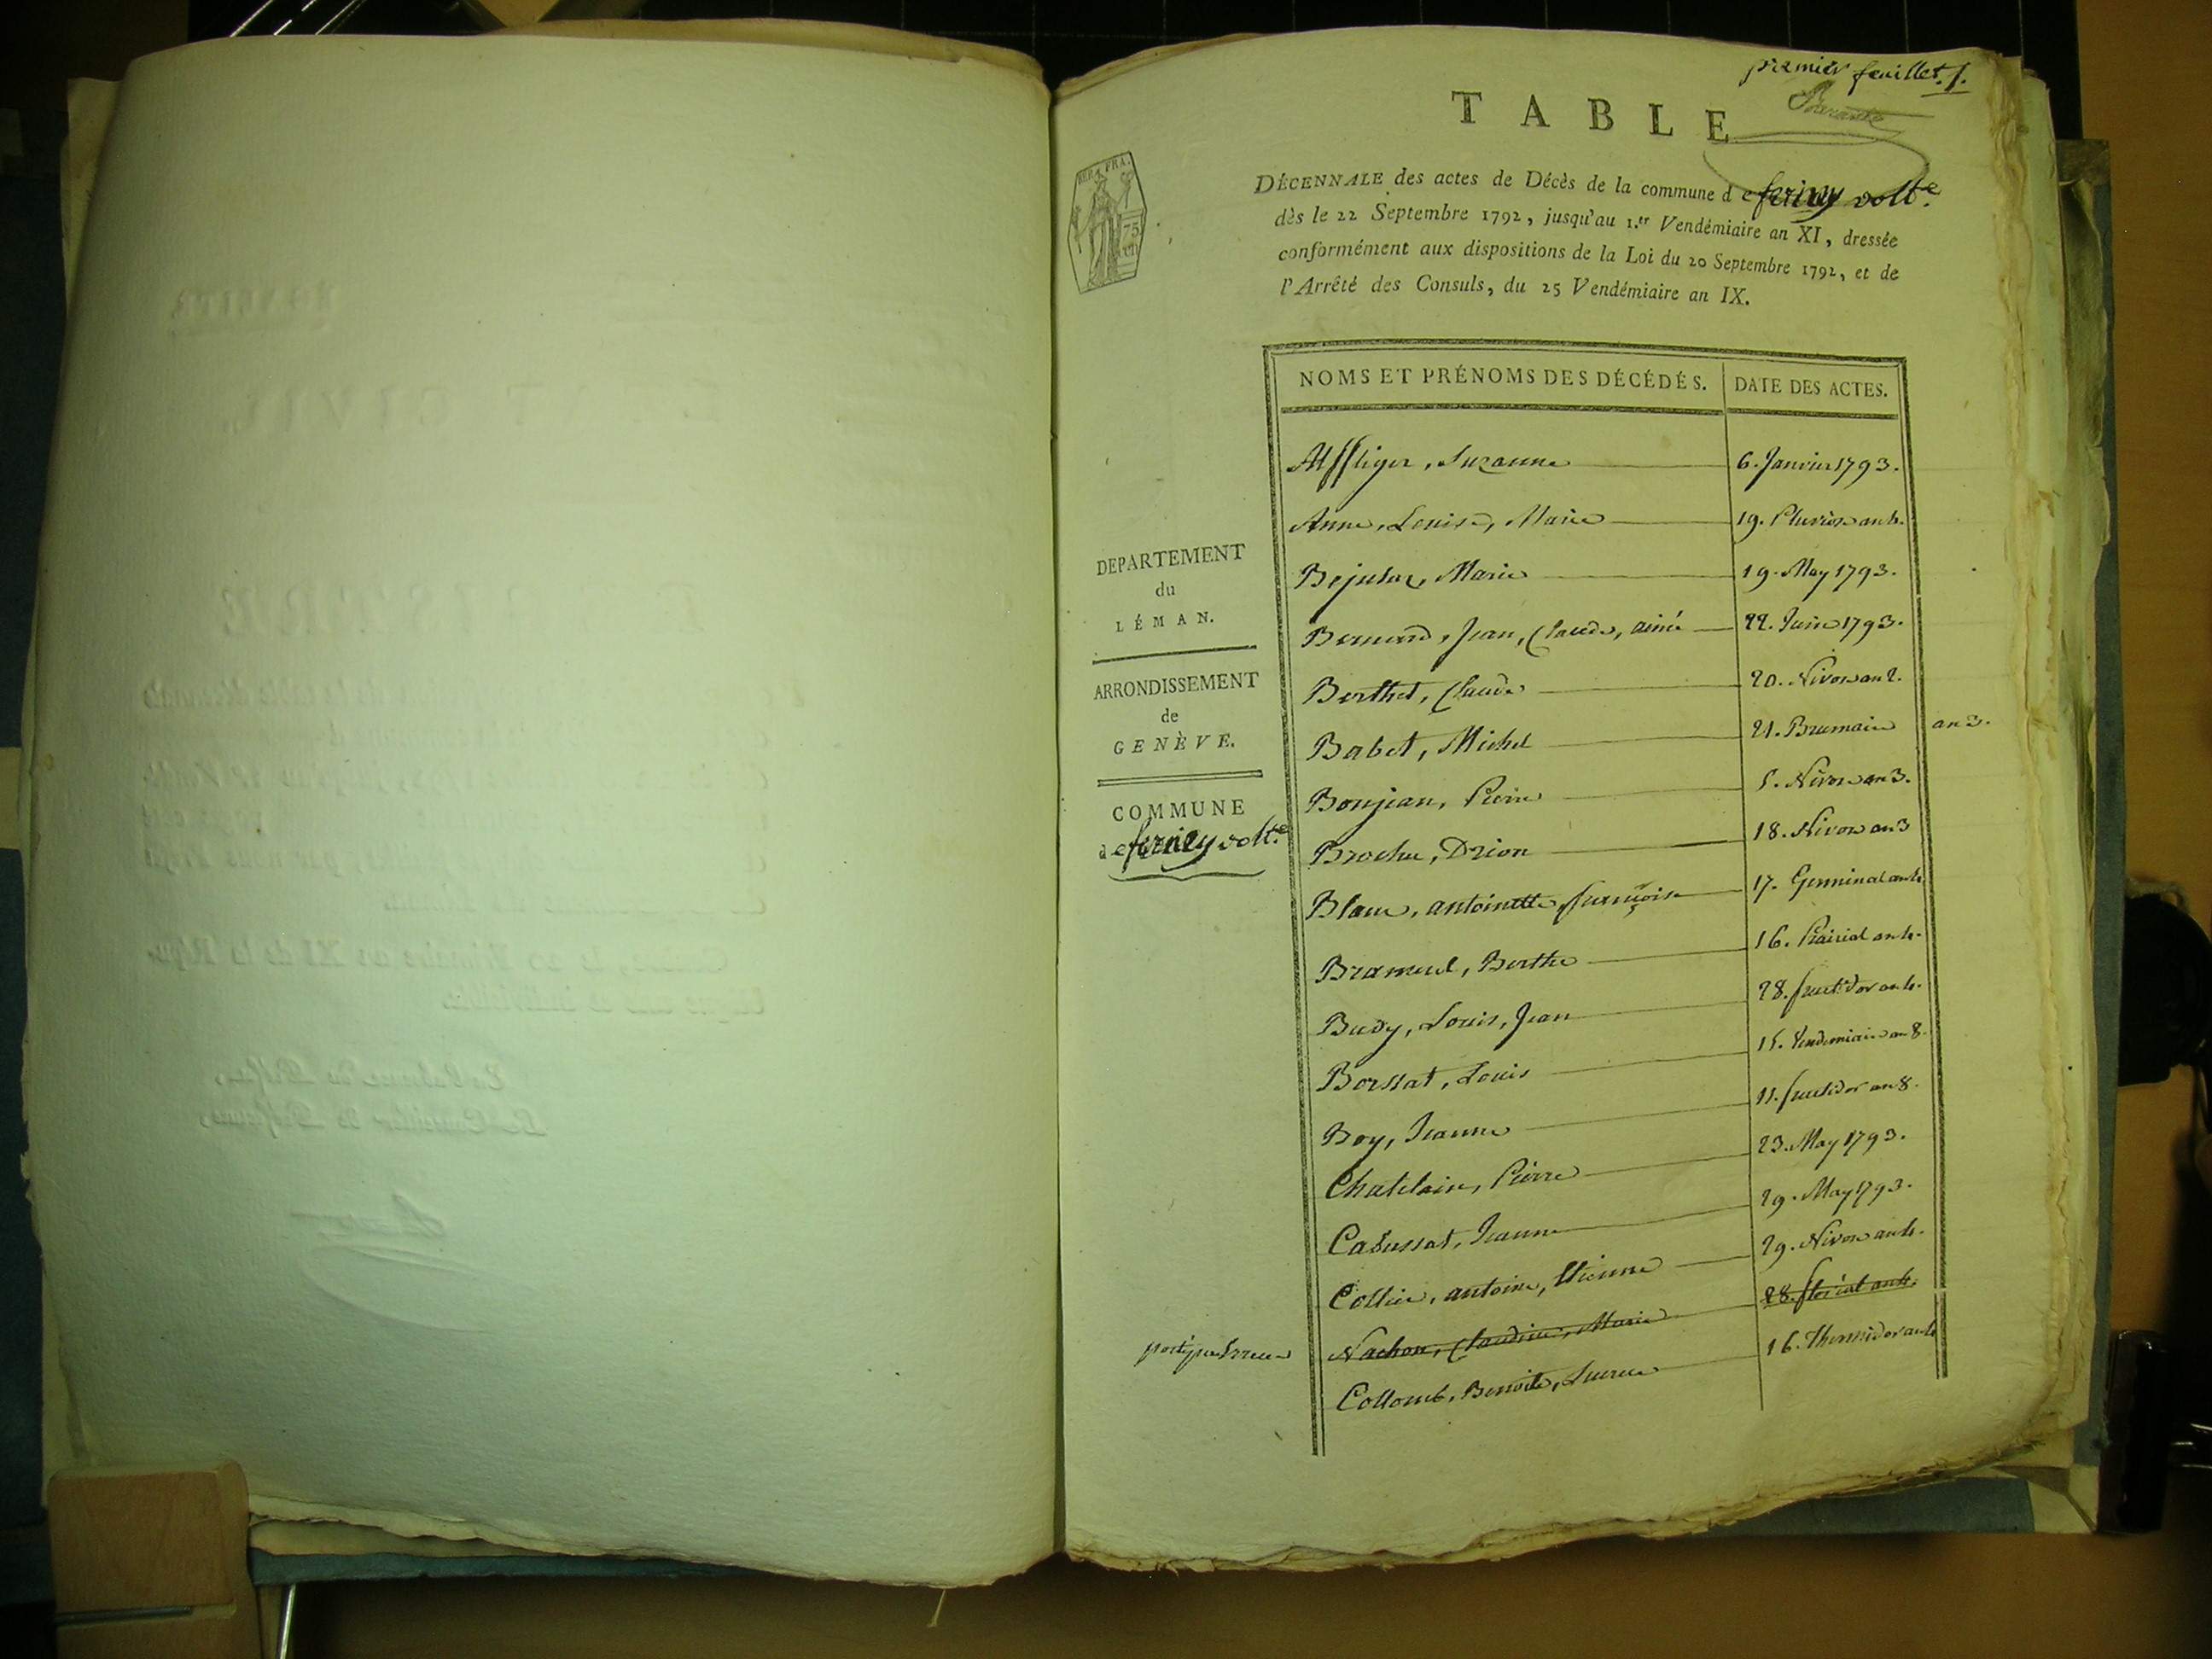 premier feuillet. 1.
TABLE
DÉCENNALE des actes de Décès de la commune de ferney volt.e
dès le 22 Septembre 1792, jusqu'au 1.er Vendémiaire an XI, dressée
conformément aux dispositions de la Loi du 20 Septembre 1792, et de
l'Arrêté des Consuls, du 25 Vendémiaire an IX.
REP. FRA.
75
DEPARTEMENT
du
LÉMAN.
ARRONDISSEMENT
de
GENÈVE.
COMMUNE
de ferney volt.e
NOMS ET PRÉNOMS DES DÉCÉDÉS. DATE DES ACTES.
Affliger, Suzanne 6. Janvier 1793.
Anne, Louise, Marie 19. Pluviose an 4.
Marie 19. May 1793.
Bernard, Jean, Claude, aimé 22. Juin 1793.
Berthet, Claude 20. Nivose an 2.
Babet, Michel 21. Brumaire an 3.
Bonjean, Pierre 5. Nivose an 3.
Broche, Drion 18. Nivose an 3
Blanc, antoinette, françoise 17. Germinal an 4
Berthe 16. Prairial an 4.
Budy, Louis, Jean 28. fructidor an 4.
Borssat, Louis 15. Vendemiaire an 8.
Boy, Jeanne 11. fructidor an 8.
Chatelain, Pierre 23. May 1793.
Cabussat, Jeanne 29. May 1793.
Collier, antoine, Etienne 29. Nivose an 4.
porté par Erreur Nachon, Claudine, Marie 28. floréal an 4.
Collomb, Benoite, Lucrece 16. Thermidor an 4